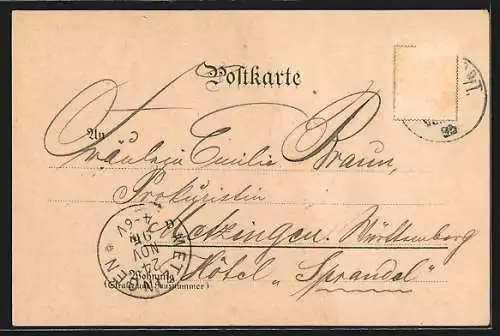 Postkarte
An
Fräulein Emilie Braun,
Prokuristin
Metzingen. Württemberg
Hôtel „Sprandel"
Wohnung
(Straße und Hausnummer)
METZINGEN
24 NOV
95
4-6 V